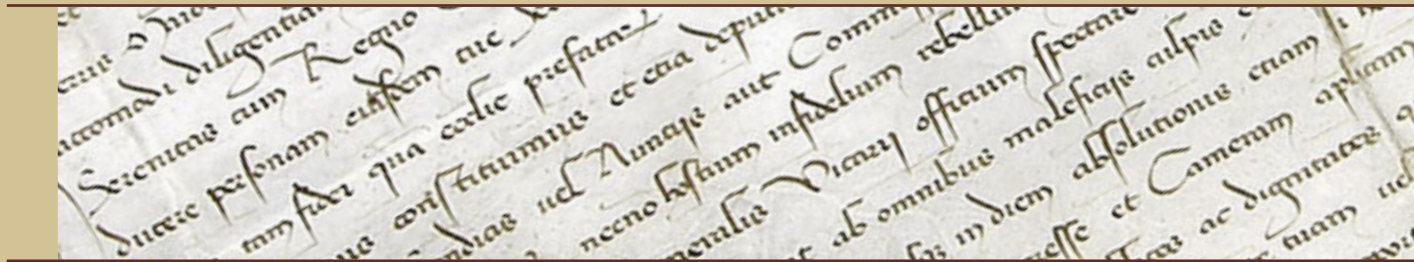 accomodi diligentia
Serenitas cum Regio
ducere personam eiusdem tue
tam fidei qua ecclie prefatar
constituimus et etia deputa
dias uel Nuncijs aut Comm
necno hostium infidelium rebelliu
neralis Vicarij officium spectare
ab omnibus maleficijs culpis
in diem absolutionis etiam
esse et Cameram aplicam
ac dignitates
tuam uel